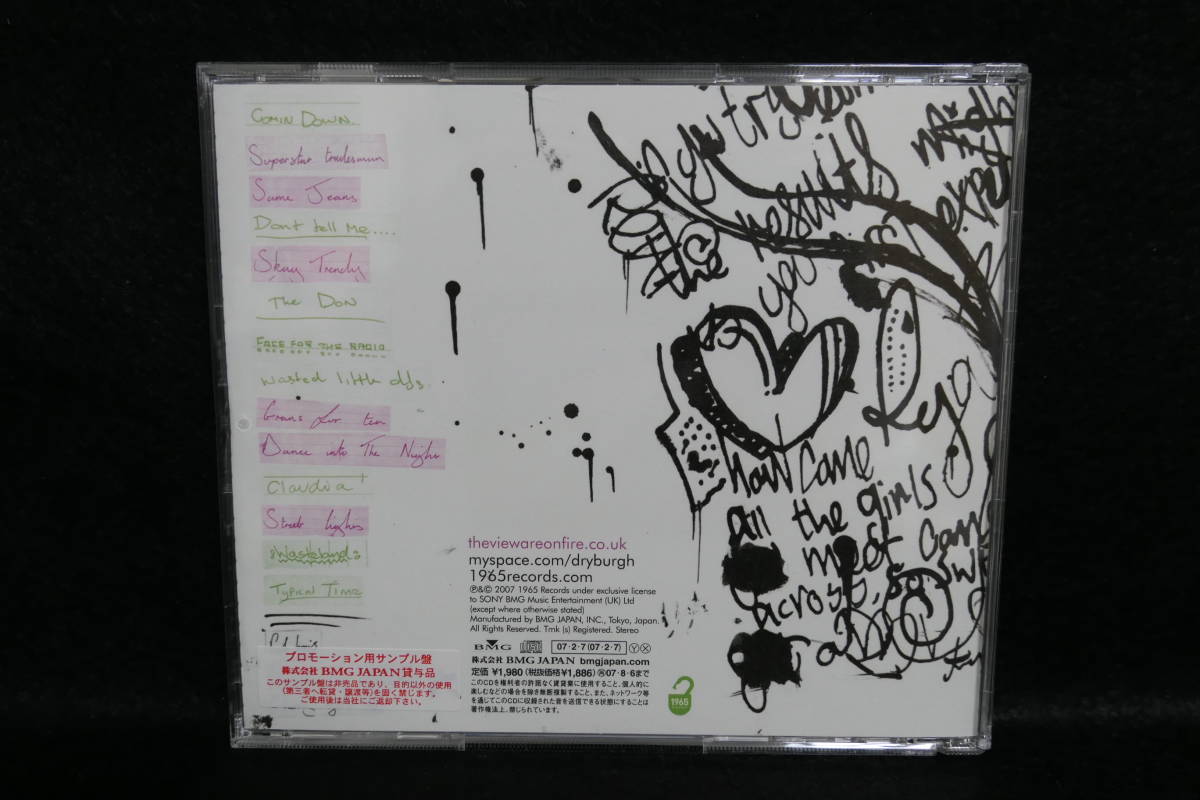 Comin Down..
Superstar tradesman
Same Jeans
Dont tell Me....
Skag Trendy
The Don
FACE FOR THE RADIO
wasted little djs
Grans for tea
Dance into The Night
Claudia
Street lights
Wastelands
Typical Time
プロモーション用サンプル盤
株式会社 BMG JAPAN 貸与品
このサンプル盤は非売品であり、目的以外の使用
(第三者へ転貸・譲渡等)を固く禁じます。
ご使用後は当社にご返却下さい。
theviewareonfire.co.uk
myspace.com/dryburgh
1965records.com
℗&© 2007 1965 Records under exclusive license
to SONY BMG Music Entertainment (UK) Ltd
(except where otherwise stated)
Manufactured by BMG JAPAN, INC., Tokyo, Japan.
All Rights Reserved. Tmk (s) Registered. Stereo
BMG 07・2・7 (07・2・7) Ⓨ Ⓧ
株式会社 BMG JAPAN bmgjapan.com
定価 ¥1,980 (税抜価格¥1,886) 07・8・6まで
このCDを権利者の許諾なく賃貸業に使用すること、個人的に
楽しむなどの場合を除き無断複製すること、また、ネットワーク等
を通じてこのCDに収録された音を送信できる状態にすることは
著作権法上、禁じられています。
1965
results
the
how come
all the girls
meet
across